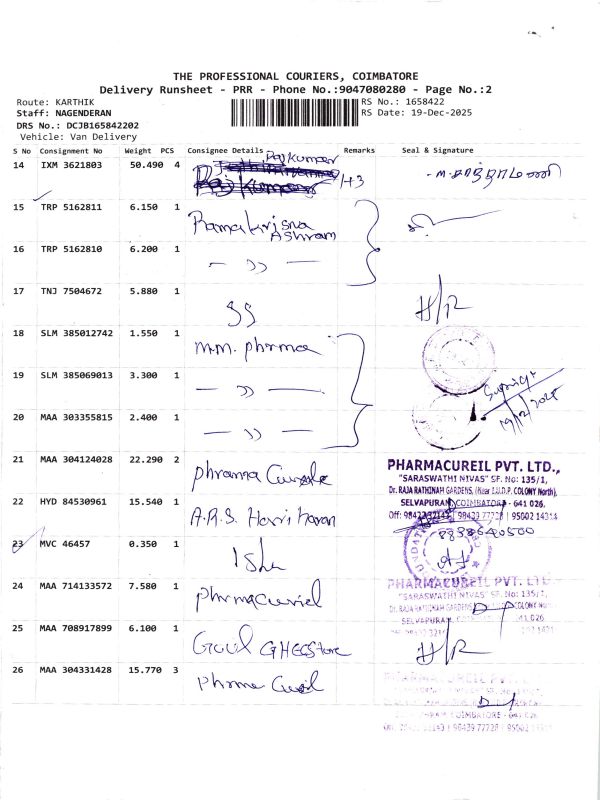 THE PROFESSIONAL COURIERS, COIMBATORE
Delivery Runsheet - PRR - Phone No.:9047080280 - Page No.:2
Route: KARTHIK
RS No.: 1658422
Staff: NAGENDERAN
RS Date: 19-Dec-2025
DRS No.: DCJB165842202
Vehicle: Van Delivery
S No Consignment No Weight PCS Consignee Details Remarks Seal & Signature
14 IXM 3621803 50.490 4 Rajkumar H3
15 TRP 5162811 6.150 1 Ramakrisna Ashram
16 TRP 5162810 6.200 1 — )) —
17 TNJ 7504672 5.880 1 SS H/R
18 SLM 385012742 1.550 1 m.m. phrma
19 SLM 385069013 3.300 1 — )) —
20 MAA 303355815 2.400 1 — )) — 19/12/2025
21 MAA 304124028 22.290 2
PHARMACUREIL PVT. LTD.,
"SARASWATHI NIVAS" SF. No: 135/1,
Dr. RAJA RATHINAM GARDENS, (Near T.U.D.P. COLONY North),
SELVAPURAM, COIMBATORE - 641 026.
Off: 9842232143 | 98429 77728 | 95002 14314
22 HYD 84530961 15.540 1 A.R.S. Hariharan
23 MVC 46457 0.350 1 Isha
24 MAA 714133572 7.580 1
PHARMACUREIL PVT. LTD.
"SARASWATHI NIVAS" SF. No: 135/1,
Dr. RAJA RATHINAM GARDENS COLONY North
SELVAPURAM
25 MAA 708917899 6.100 1 H/R
26 MAA 304331428 15.770 3
PHARMACUREIL PVT. LTD.
COIMBATORE - 641 026
98429 77728 | 95002